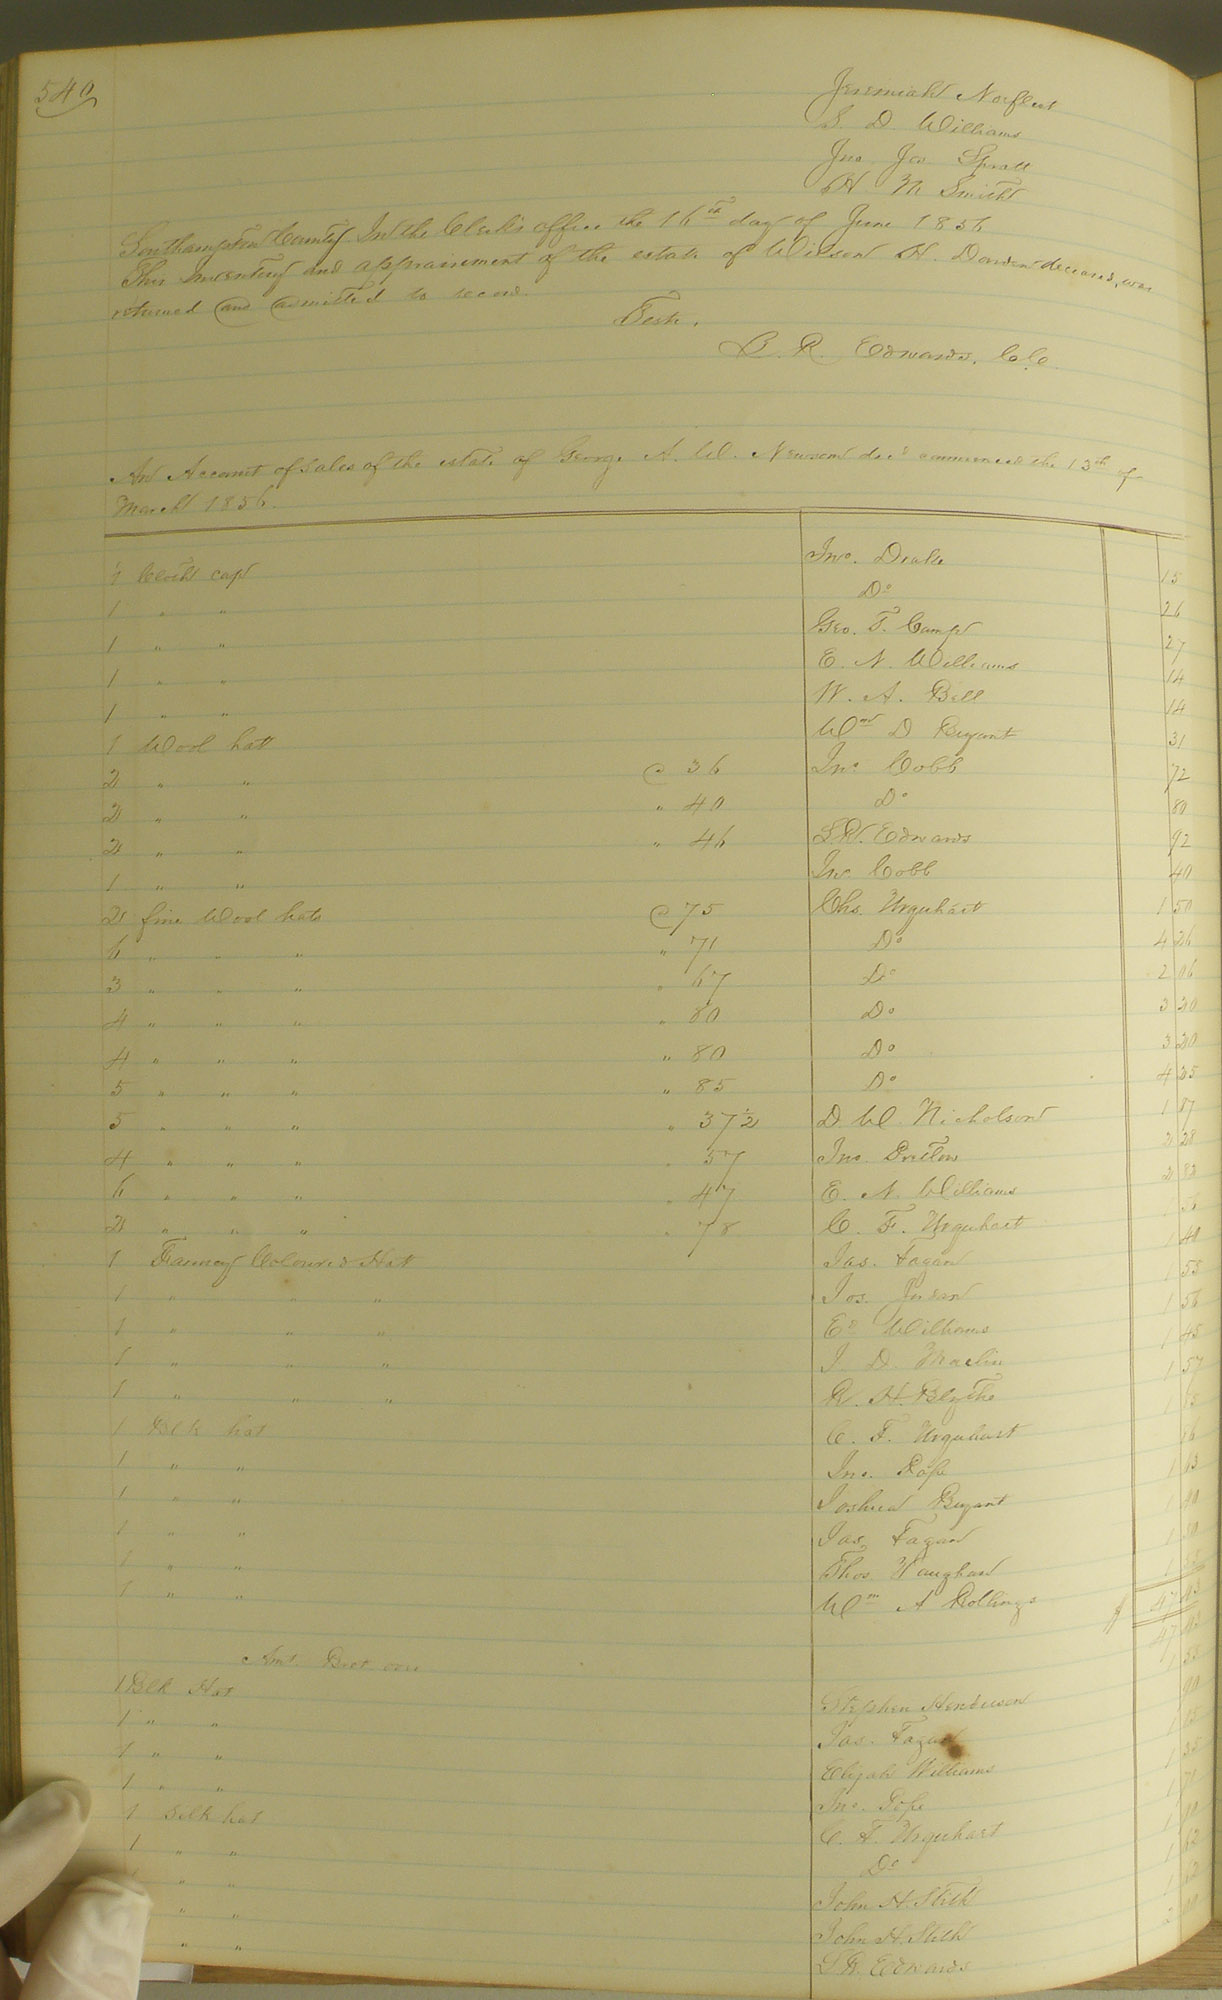 540
Jeremiah Norfleet
S. D. Williams
Jno. Jos Spratt
H M Smith
Southampton County In the Clerk's office the 16th day of June 1856
This Inventory and appraisement of the estate of Wilson H. Darden deceased, was
returned and admitted to record.
Teste.
L. R. Edwards, C.C.
An Account of sales of the estate of George A. W. Newsom decd commenced the 13th of
March 1856.
1 Cloth cap Jno. Drake 15
1 " " Do 26
1 " " Geo. T. Camp 27
1 " " E. N. Williams 14
1 " " W. A. Bell 14
1 Wool hatt Wm D Bryant 31
2 " " @ 36 Jno Cobb 72
2 " " " 40 Do 80
2 " " " 46 L.R. Edwards 92
1 " " Jno. Cobb 40
2 fine Wool hats @ 75 Chs. Urquhart 1 50
6 " " " " 71 Do 4 26
3 " " " " 67 Do 2 06
4 " " " " 80 Do 3 20
4 " " " " 80 Do 3 20
5 " " " " 85 Do 4 25
5 " " " " 37½ D. W. Nicholson 1 87
4 " " " " 57 Jno. Pretlow 2 28
6 " " " " 47 E. N. Williams 2 82
2 " " " " 78 C. F. Urquhart 1 56
1 Fanncy Coloured Hat Jas. Fagan 1 40
1 " " " Jos. 1 55
1 " " " Ed Williams 1 56
1 " " " J. D. Maclin 1 45
1 " " " R. H. Blythe 1 57
1 Blk hat C. F. Urquhart 1
1 " " Jno. Pope
1 " " Joshua Bryant 1
1 " " Jas. Fagan 1
1 " " Thos Vaughan 1
1 " " Wm A Rollings 1
$ 47
Amt. Brot. over 47
1 Blk Hat Stephen Henderson 1 55
1 " " Jas. Fagan 90
1 " " Elijah Williams 1
1 " " Jno. Pope 1
1 Silk hat C. F. Urquhart 1
1 " " Do 1
" " John H. Stith 1 62
" " John H. Stith 1 62
" " L R. Edwards 2